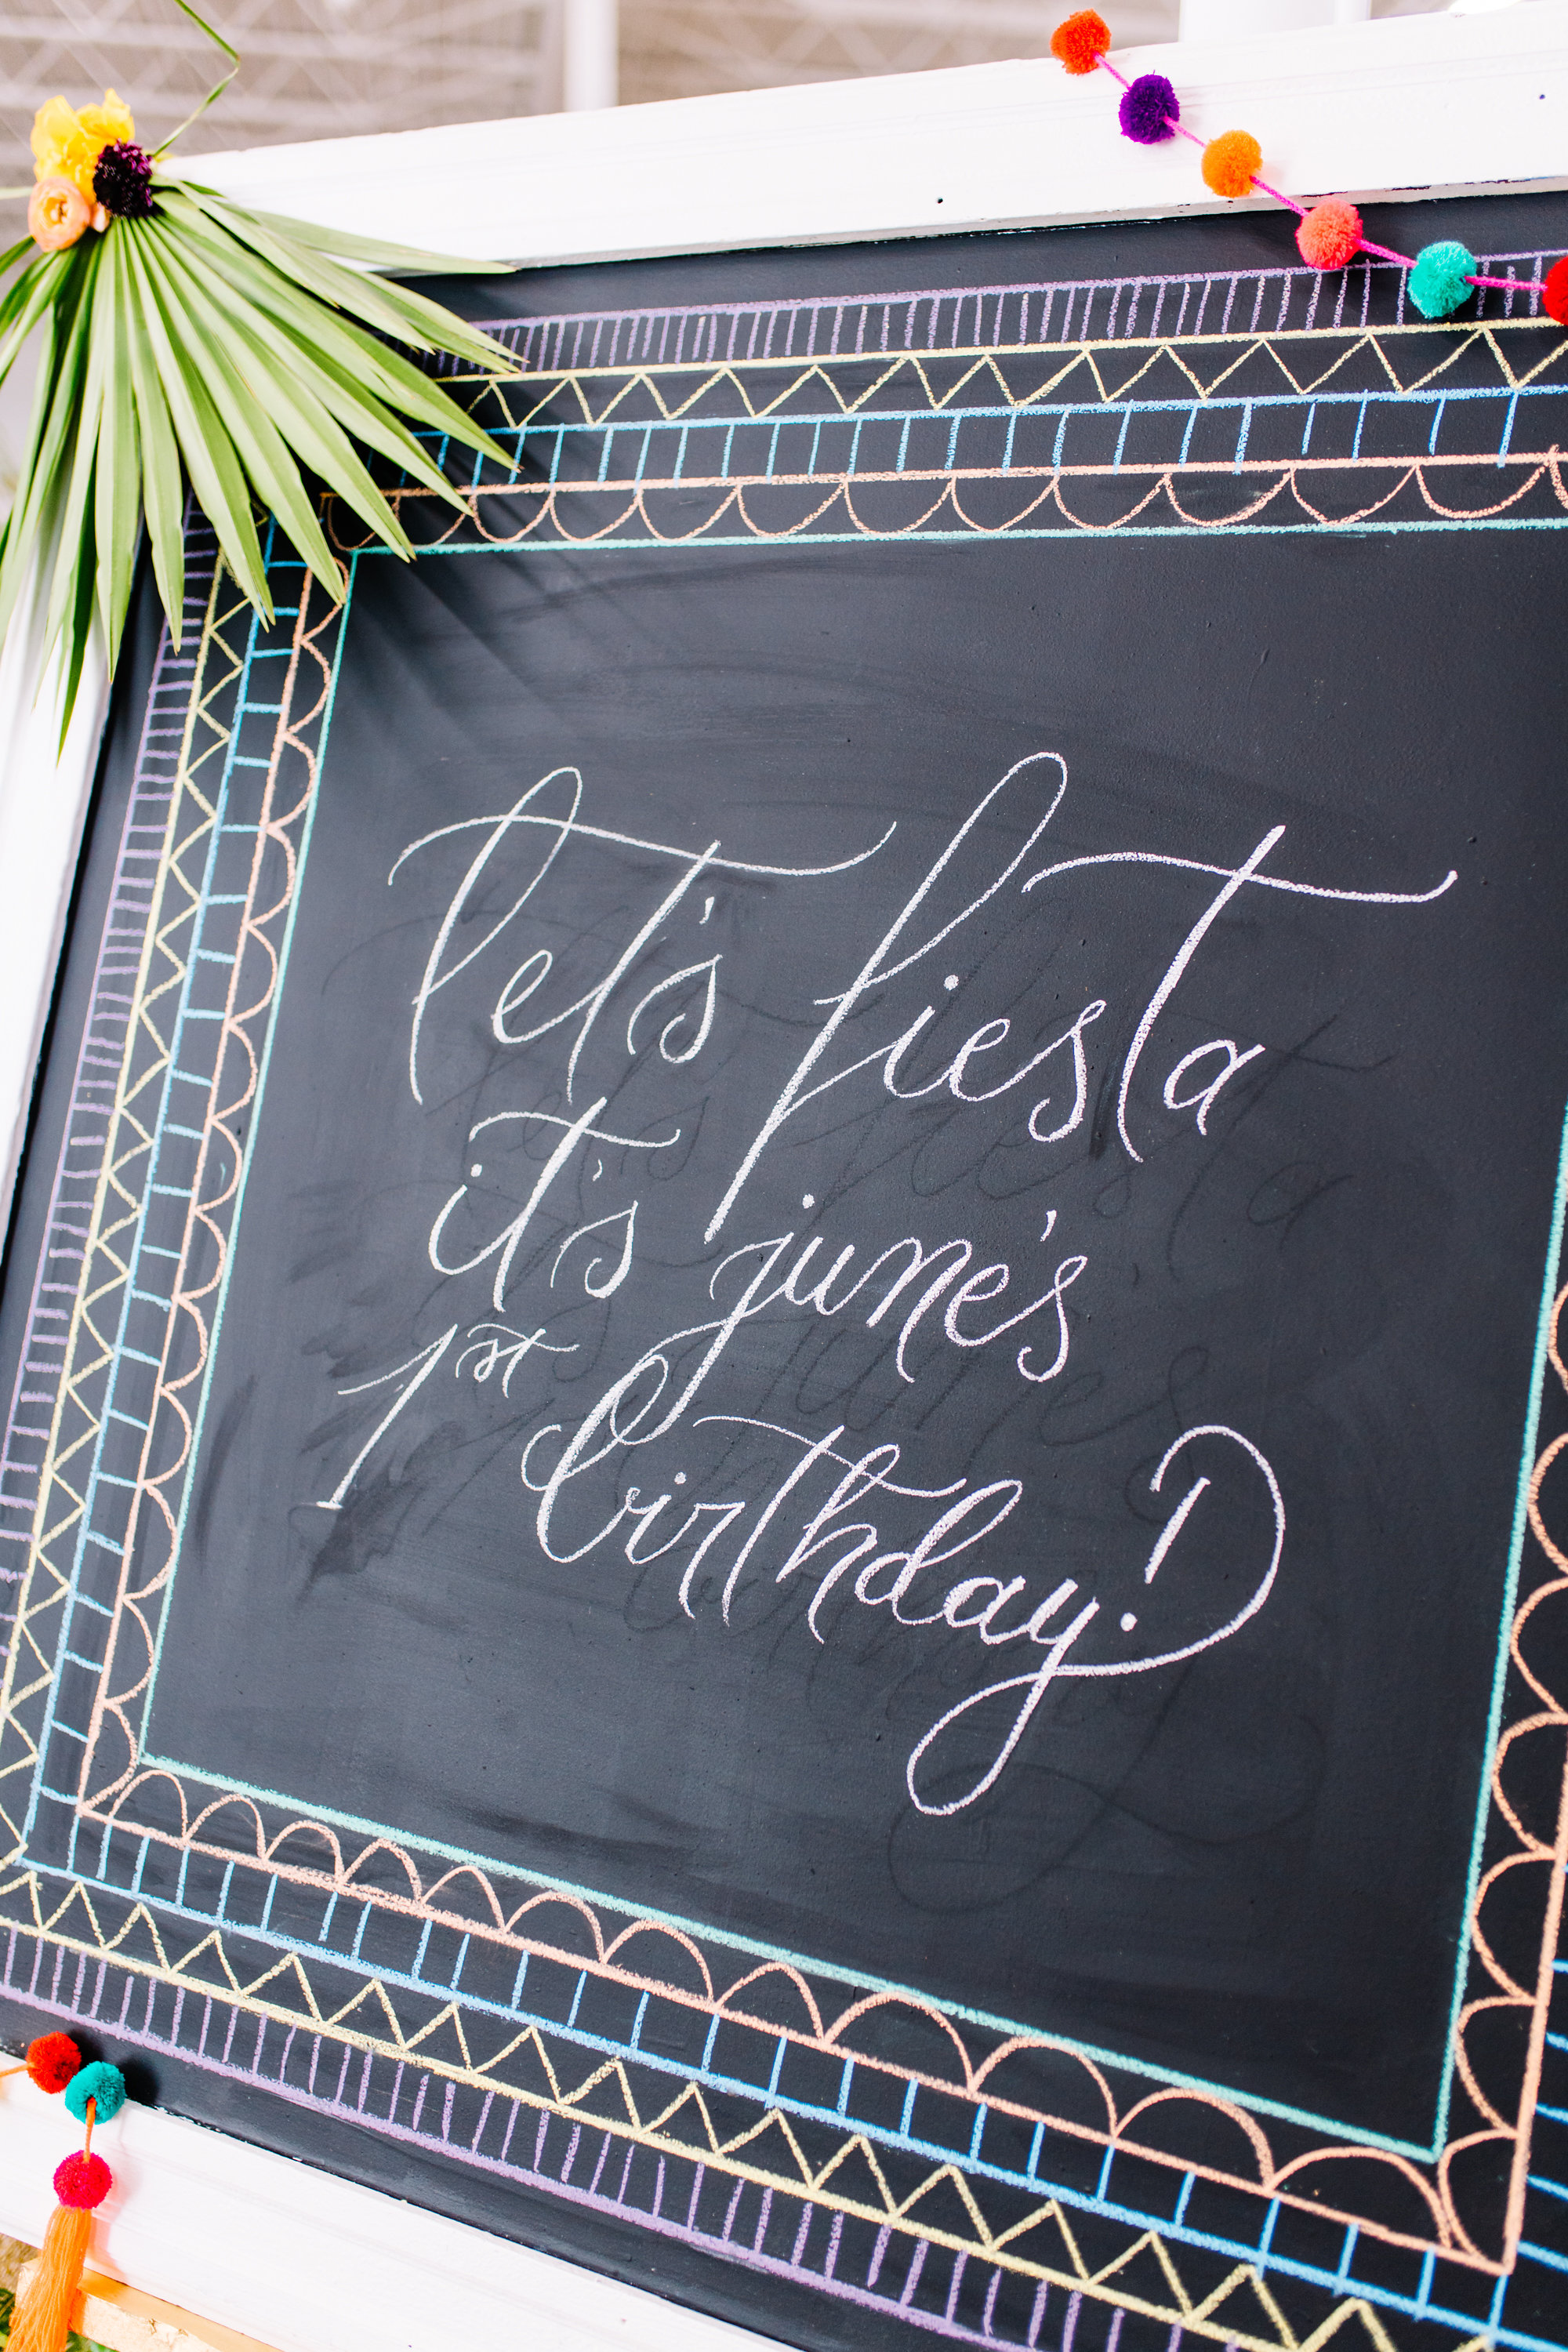 let's fiesta
it's june's
1st birthday!